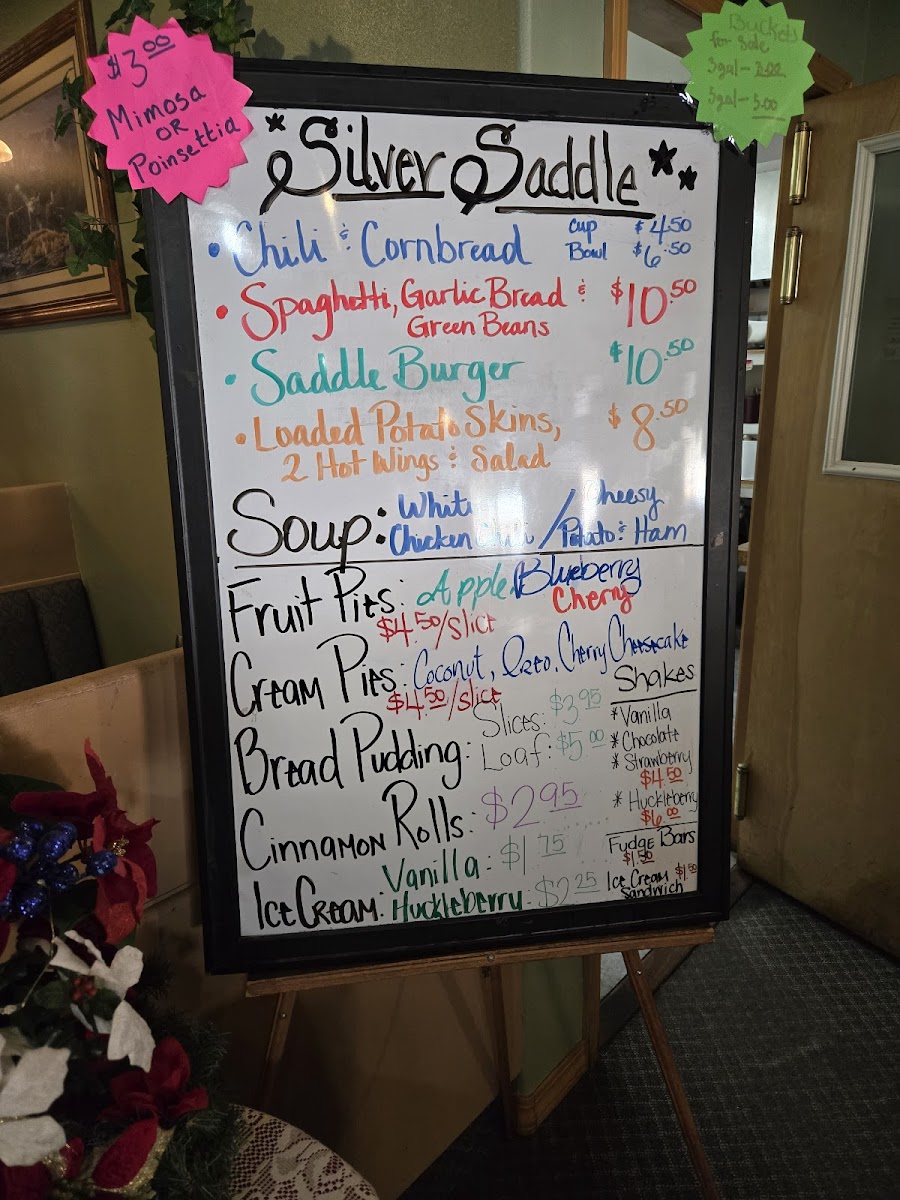 $3.00
Mimosa
OR
Poinsettia
Buckets
for Sale
3gal-
5gal- 5.00
* Silver Saddle **
• Chili & Cornbread Cup $4.50
Bowl $6.50
• Spaghetti, Garlic Bread & $10.50
Green Beans
• Saddle Burger $10.50
• Loaded Potato Skins, $8.50
2 Hot Wings & Salad
Soup: White / Cheesy
Chicken Chili Potato & Ham
Fruit Pies: Apple, Blueberry
$4.50/slice Cherry
Cream Pies: Coconut, Oreo, Cherry Cheesecake
$4.50/slice
Bread Pudding: Slices: $3.95
Loaf: $5.00
Cinnamon Rolls: $2.95
Ice Cream: Vanilla: $1.75
Huckleberry- $2.25
Shakes
* Vanilla
* Chocolate
* Strawberry
$4.50
* Huckleberry
$6.00
Fudge Bars
$1.50
Ice Cream $1.50
Sandwich